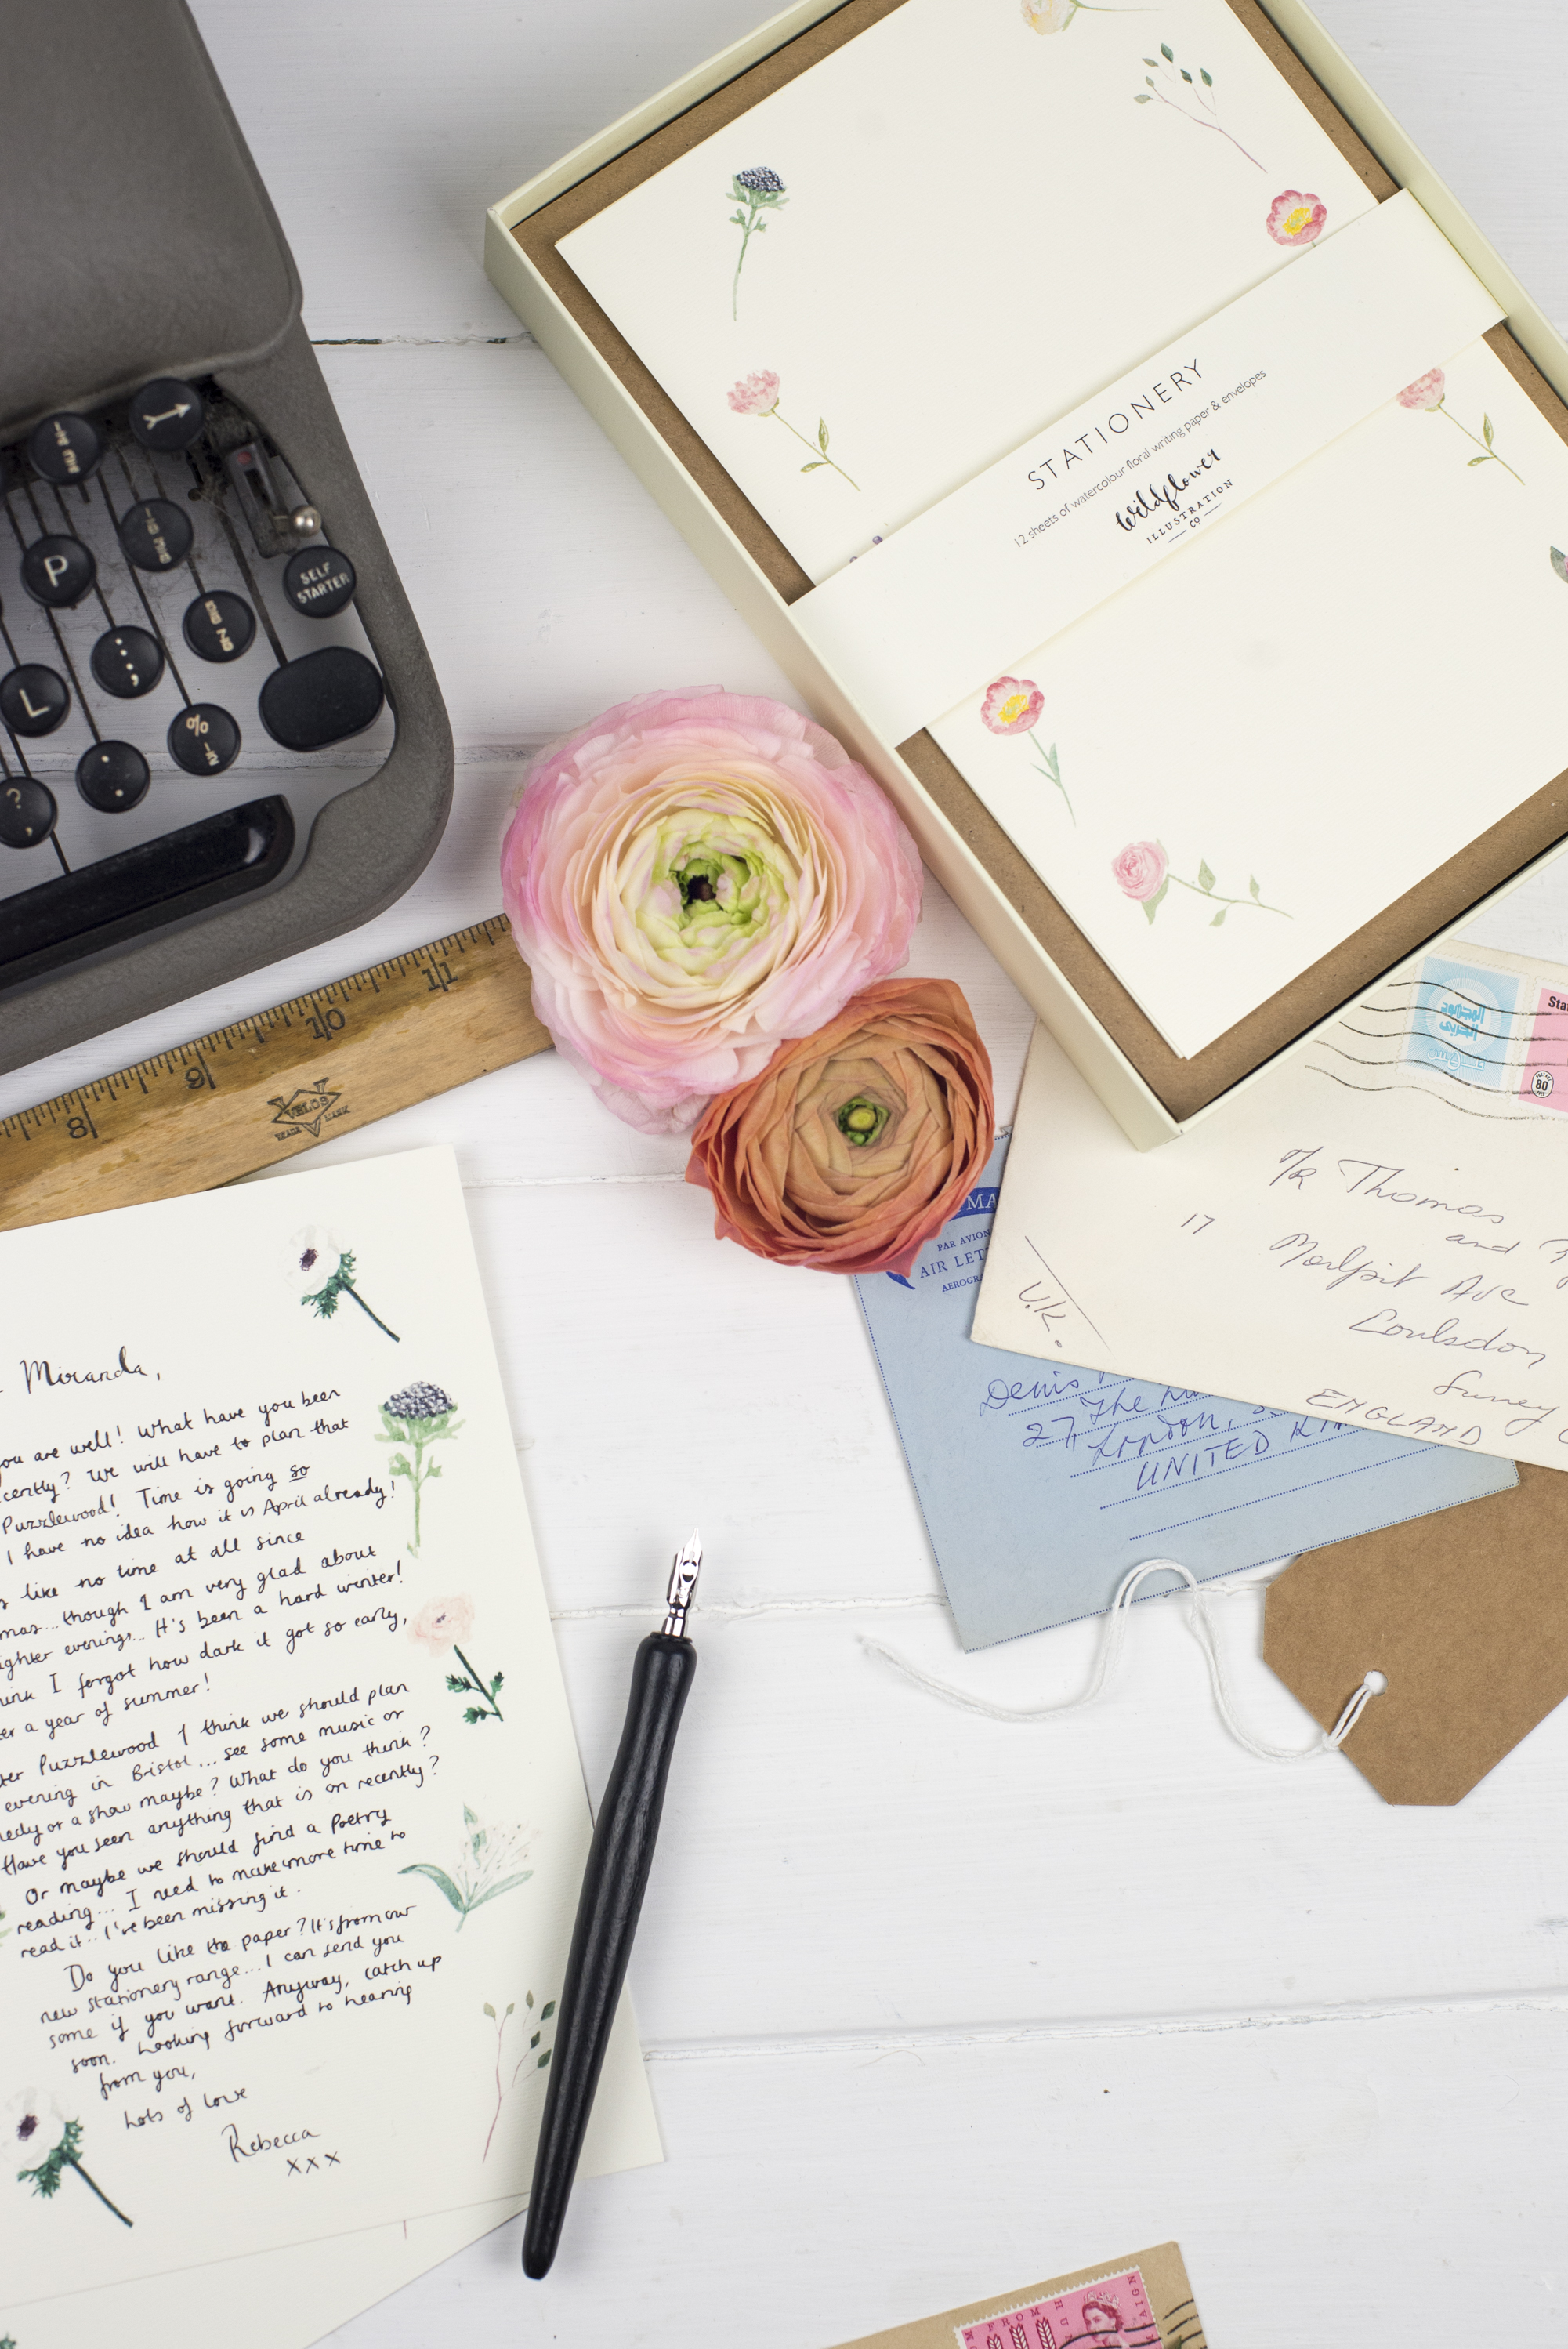 P
L
SELF
STARTER
%
½
:
;
.
?
,
STATIONERY
12 sheets of watercolour floral writing paper & envelopes
Wildflower
ILLUSTRATION
CO
8 9 10 11
VELOS
TRADE MARK
المجهود
الحربي
Sta
80
M/R Thomas
and
17
Marlpit Ave
Coulsdon
Surrey
ENGLAND
U.K.
MA
PAR AVION
AIR LET
AEROGR
Denis
27, The
London, S
UNITED KIN
Miranda,
you are well! What have you been
cently? We will have to plan that
Puzzlewood! Time is going so
I have no idea how it is April already!
s like no time at all since
mas... though I am very glad about
ighter evenings... It's been a hard winter!
ink I forgot how dark it got so early,
er a year of summer!
ter Puzzlewood I think we should plan
evening in Bristol... see some music or
medy or a show maybe? What do you think?
Have you seen anything that is on recently?
Or maybe we should find a Poetry
reading... I need to make more time to
read it.. I've been missing it.
Do you like the paper? It's from our
new stationery range... I can send you
some if you want. Anyway, catch up
soon. Looking forward to hearing
from you,
Lots of love
Rebecca
xxx
FROM HUN
AIGN